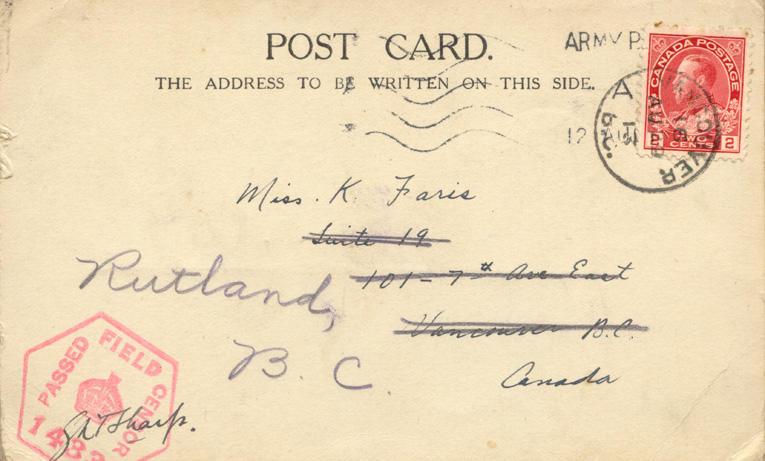 POST CARD.
ARMY P
THE ADDRESS TO BE WRITTEN ON THIS SIDE.
CANADA POSTAGE
TWO CENTS
2
12 AU
VANCOUVER
B.C.
A
15
AU
Miss. K. Faris
Suite 19
101 - 7th Ave East
Rutland,
Vancouver B.C.
B. C.
Canada
PASSED FIELD CENSOR
148
Sharp.